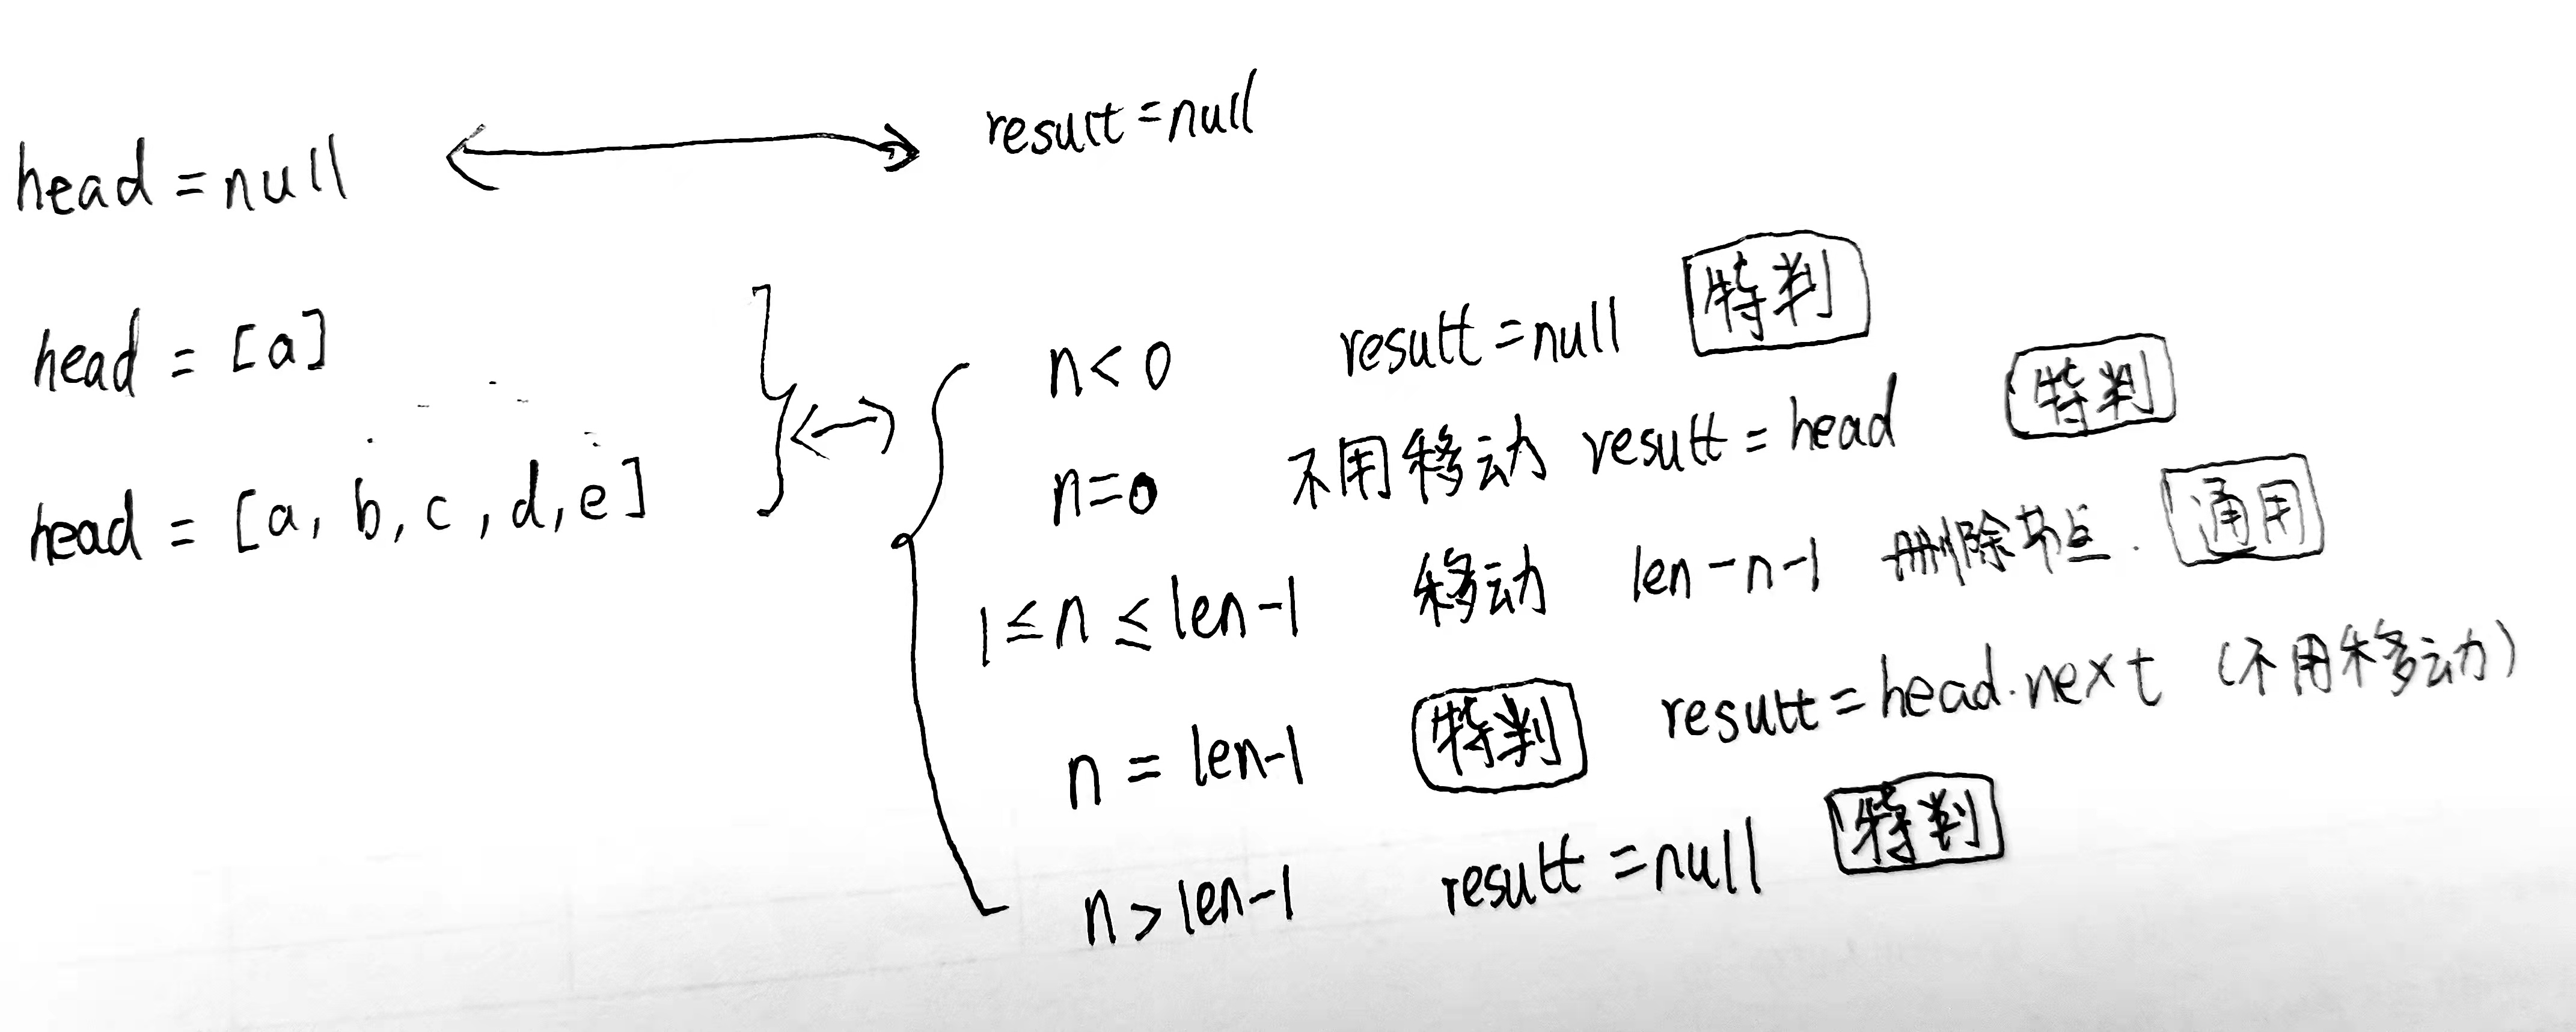 head = null result = null
head = [a]
head = [a, b, c, d, e]
n < 0 result = null 特判
n = 0 不用移动 result = head 特判
1 ≤ n ≤ len-1 移动 len-n-1 删除节点. 通用
n = len-1 特判 result = head.next (不用移动)
n > len-1 result = null 特判